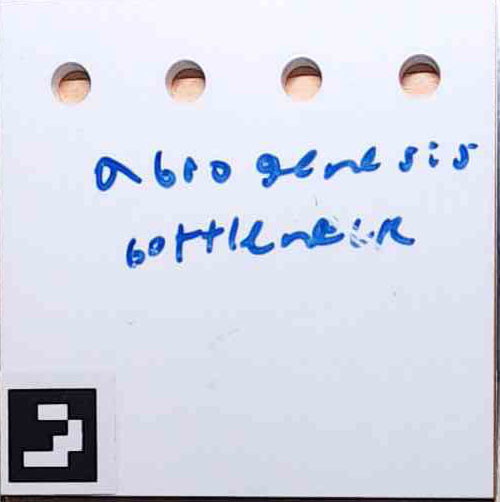 abiogenesis
bottleneck